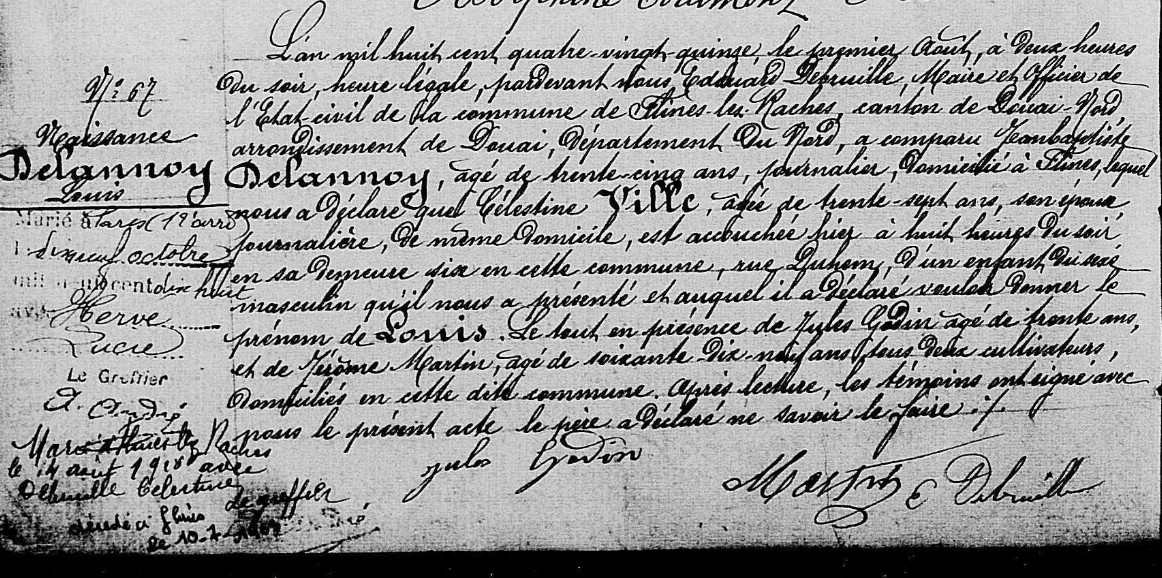 L'an mil huit cent quatre-vingt-quinze, le premier Août, à deux heures
du soir, heure légale, pardevant Nous Edouard Debruille, Maire et Officier de
l'Etat-civil de la commune de Flines-lez-Raches, canton de Douai-Nord
arrondissement de Douai, Département du Nord, a comparu Jeanbaptiste
Delannoy, agé de trente-cinq ans, journalier, Domicilié à Flines, lequel
nous a déclaré que Célestine Ville, agée de trente-sept ans, son épouse
journalière, de même domicile, est accouchée hier à huit heures du soir
en sa demeure six en cette commune, rue Duhem, d'un enfant du sexe
masculin qu'il nous a présenté et auquel il a déclaré vouloir donner le
prénom de Louis. Le tout en présence de Jules Godin agé de trente ans,
et de Jérôme Martin, agé de soixante-dix-neuf ans, tous deux cultivateurs,
domiciliés en cette dite commune. Après lecture, les témoins ont signé avec
nous le présent acte le père a déclaré ne savoir le faire ./.
Jules Godin
Martin E Debruille
N° 67
Naissance
Delannoy
Louis
Marié à Paris (1er arrd)
le dix neuf octobre
mil neuf cent dix huit
avec Herve
Lucie
Le Greffier
A. André
Marié à Flines lez Raches
le 14 aout avec
Debruille Célestine
le greffier
décédé à Flines
le 10-7-